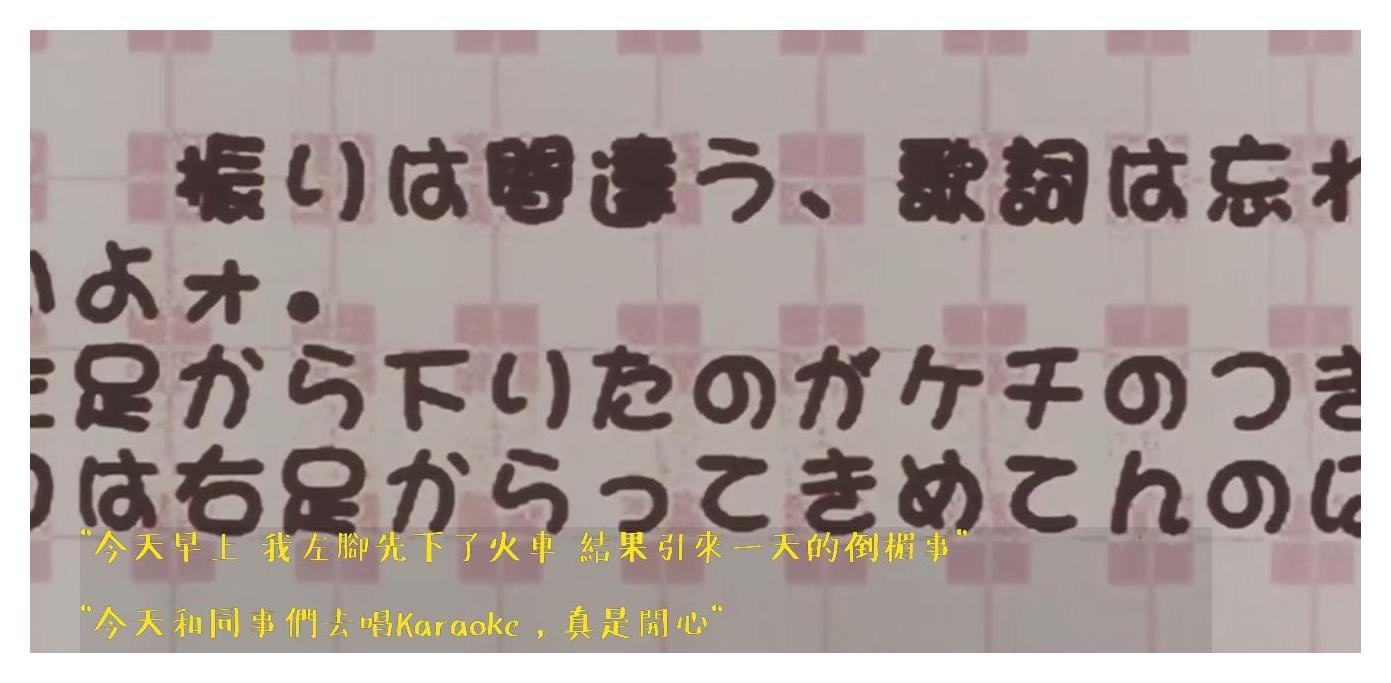 振りは間違う、歌詞は忘れ
いよォ。
左足から下りたのがケチのつき
のは右足からってきめてんのに
“今天早上 我左腳先下了火車 結果引來一天的倒楣事“
“今天和同事們去唱Karaoke，真是開心“